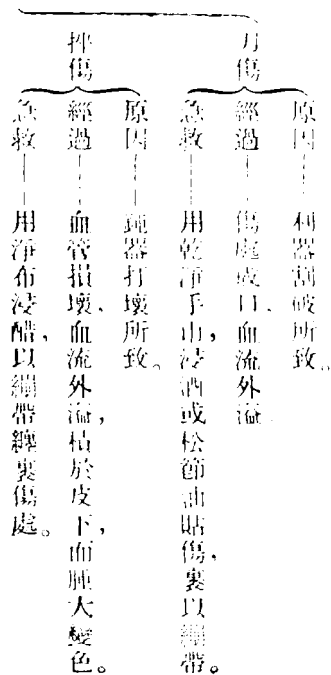 刀傷
原因——利器割破所致。
經過——傷處成口，血流外溢
急救——用乾淨手巾，浸酒或松節油貼傷，裏以繃帶。
挫傷
原因——鈍器打壞所致。
經過——血管損壞、血流外溢，積於皮下，而腫大變色。
急救——用淨布浸醋，以繃帶纏裏傷處。